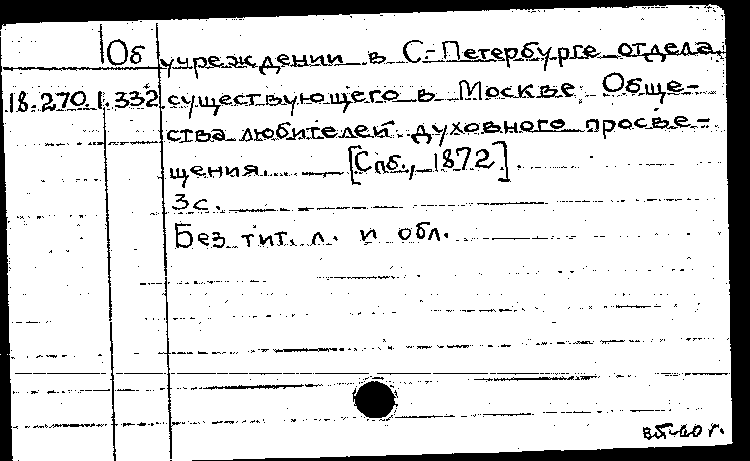 Об учреждении в С.-Петербурге отдела
18.270.1.332 существующего в Москве Обще-
ства любителей духовного просве-
щения. [Спб., 1872].
3с.
Без тит. л. и обл.